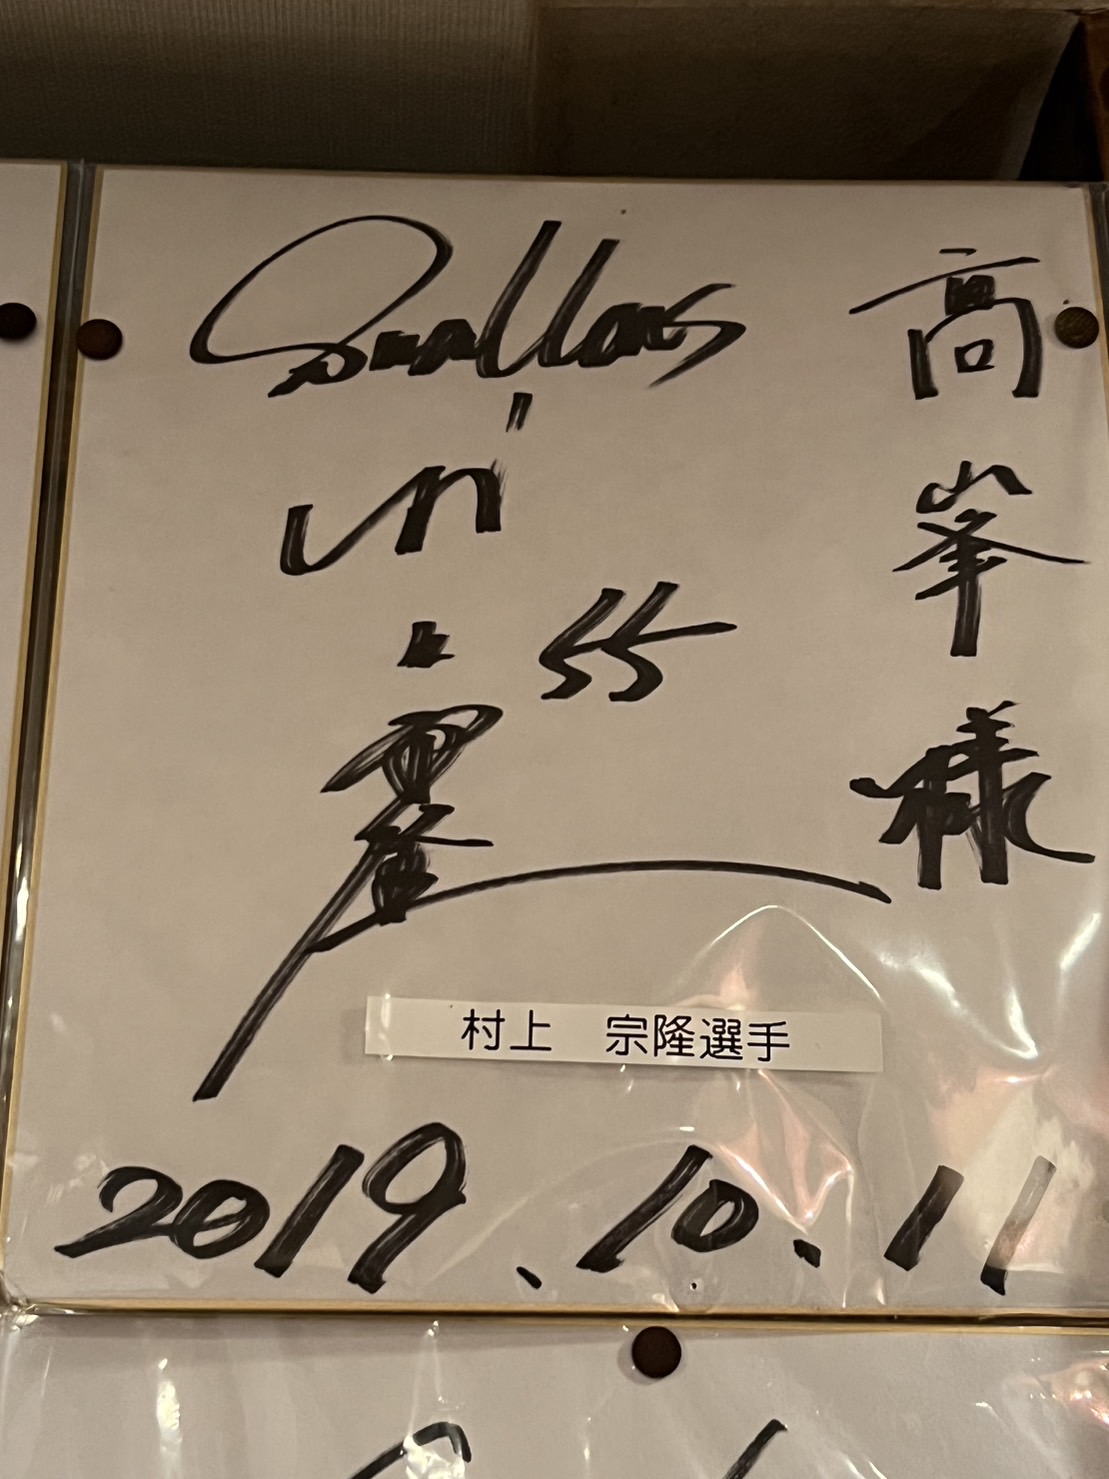 Swallows
55
高峯様
村上 宗隆選手
2019.10.11